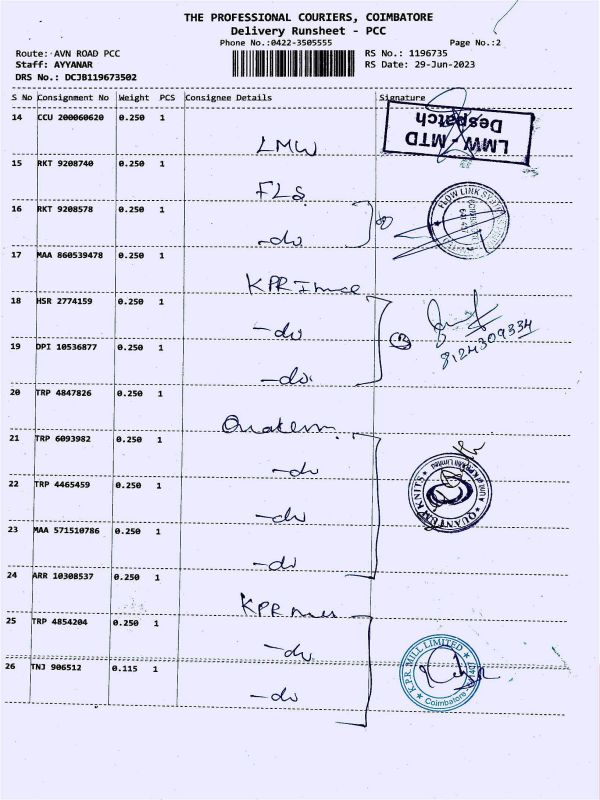 THE PROFESSIONAL COURIERS, COIMBATORE
Delivery Runsheet - PCC
Phone No.:0422-3505555 Page No.:2
Route: AVN ROAD PCC RS No.: 1196735
Staff: AYYANAR RS Date: 29-Jun-2023
DRS No.: DCJB119673502
S No Consignment No Weight PCS Consignee Details Signature
14 CCU 200060620 0.250 1 LMW
LMW - MTD
Despatch
15 RKT 9208740 0.250 1 FLS
16 RKT 9208578 0.250 1 -do
FLOW LINK
17 MAA 860539478 0.250 1 KPR
18 HSR 2774159 0.250 1 -do
19 DPI 10536877 0.250 1 -do
8124309334
20 TRP 4847826 0.250 1
21 TRP 6093982 0.250 1 -do
22 TRP 4465459 0.250 1 -do
23 MAA 571510786 0.250 1 -do
QUANTUM KNITS
A Unit of K.P.R. Mill Limited
24 ARR 10308537 0.250 1 KPR
25 TRP 4854204 0.250 1 -do
26 TNJ 906512 0.115 1 -do
K.P.R. MILL LIMITED
Coimbatore